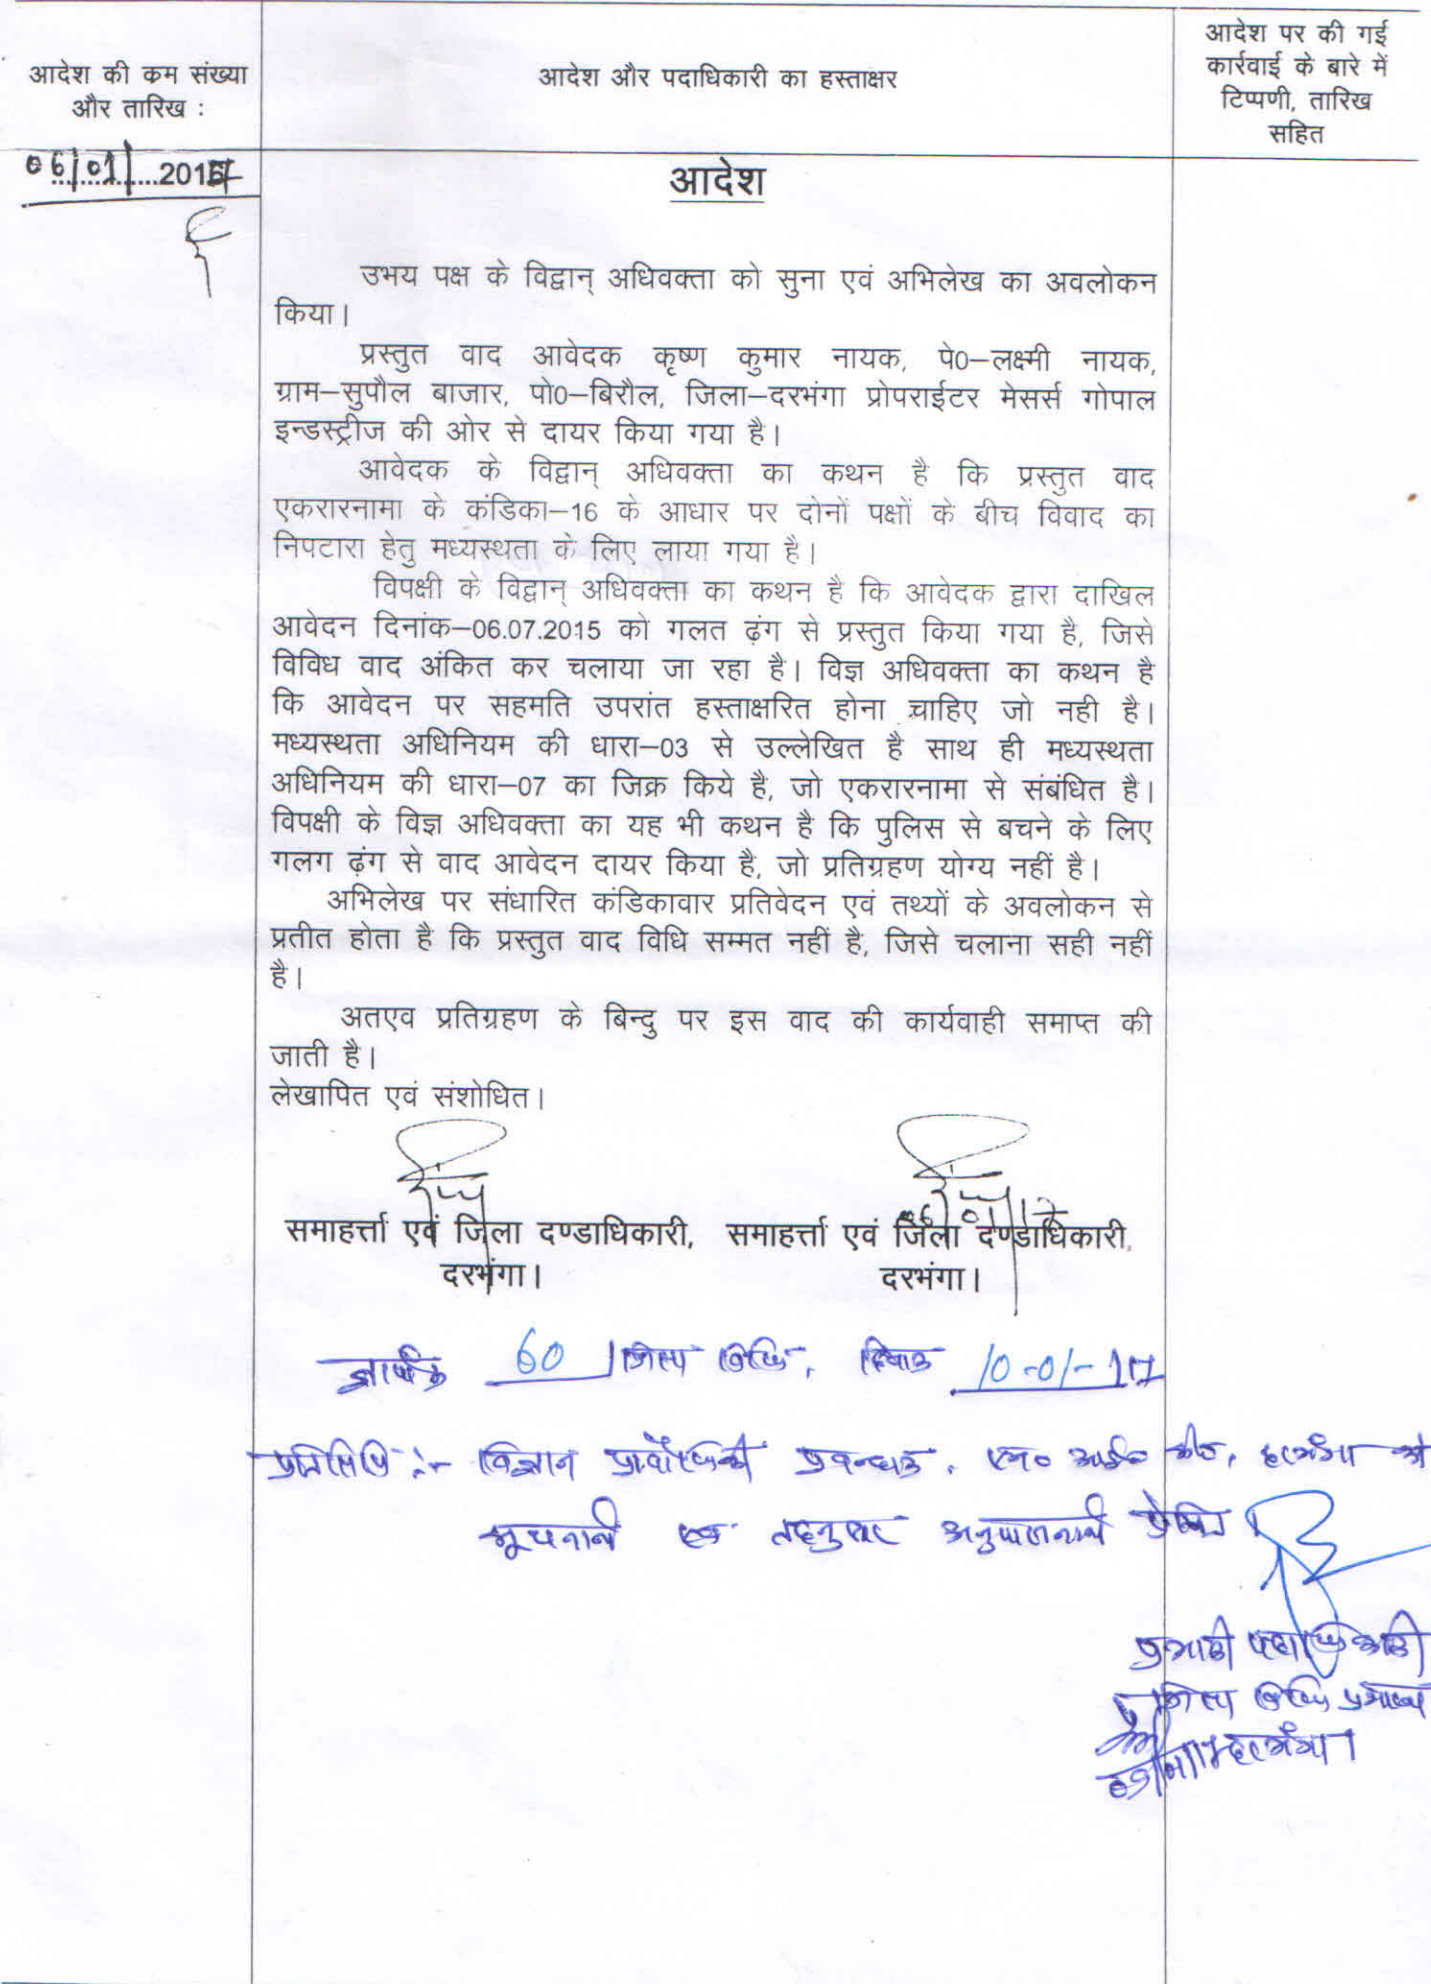 आदेश की कम संख्या
और तारिख :
आदेश और पदाधिकारी का हस्ताक्षर
आदेश पर की गई
कार्रवाई के बारे में
टिप्पणी, तारिख
सहित
06/01/2017
आदेश
उभय पक्ष के विद्वान् अधिवक्ता को सुना एवं अभिलेख का अवलोकन
किया।
प्रस्तुत वाद आवेदक कृष्ण कुमार नायक, पे0–लक्ष्मी नायक,
ग्राम–सुपौल बाजार, पो0–बिरौल, जिला–दरभंगा प्रोपराईटर मेसर्स गोपाल
इन्डस्ट्रीज की ओर से दायर किया गया है।
आवेदक के विद्वान् अधिवक्ता का कथन है कि प्रस्तुत वाद
एकरारनामा के कंडिका–16 के आधार पर दोनों पक्षों के बीच विवाद का
निपटारा हेतु मध्यस्थता के लिए लाया गया है।
विपक्षी के विद्वान् अधिवक्ता का कथन है कि आवेदक द्वारा दाखिल
आवेदन दिनांक–06.07.2015 को गलत ढ़ंग से प्रस्तुत किया गया है, जिसे
विविध वाद अंकित कर चलाया जा रहा है। विज्ञ अधिवक्ता का कथन है
कि आवेदन पर सहमति उपरांत हस्ताक्षरित होना चाहिए जो नही है।
मध्यस्थता अधिनियम की धारा–03 से उल्लेखित है साथ ही मध्यस्थता
अधिनियम की धारा–07 का जिक्र किये है, जो एकरारनामा से संबंधित है।
विपक्षी के विज्ञ अधिवक्ता का यह भी कथन है कि पुलिस से बचने के लिए
गलग ढ़ंग से वाद आवेदन दायर किया है, जो प्रतिग्रहण योग्य नहीं है।
अभिलेख पर संधारित कंडिकावार प्रतिवेदन एवं तथ्यों के अवलोकन से
प्रतीत होता है कि प्रस्तुत वाद विधि सम्मत नहीं है, जिसे चलाना सही नहीं
है।
अतएव प्रतिग्रहण के बिन्दु पर इस वाद की कार्यवाही समाप्त की
जाती है।
लेखापित एवं संशोधित।
06/01/17
समाहर्त्ता एवं जिला दण्डाधिकारी, समाहर्त्ता एवं जिला दण्डाधिकारी,
दरभंगा। दरभंगा।
ज्ञापांक 60 / विधि, दिनांक 10-01-17
प्रतिलिपि :- विज्ञान प्रावैधिकी प्रबन्धक, एन० आई० सी०, दरभंगा को
सूचनार्थ एवं तदनुसार अनुपालनार्थ प्रेषित।
प्रभारी पदाधिकारी
विधि प्रशाखा
दरभंगा।